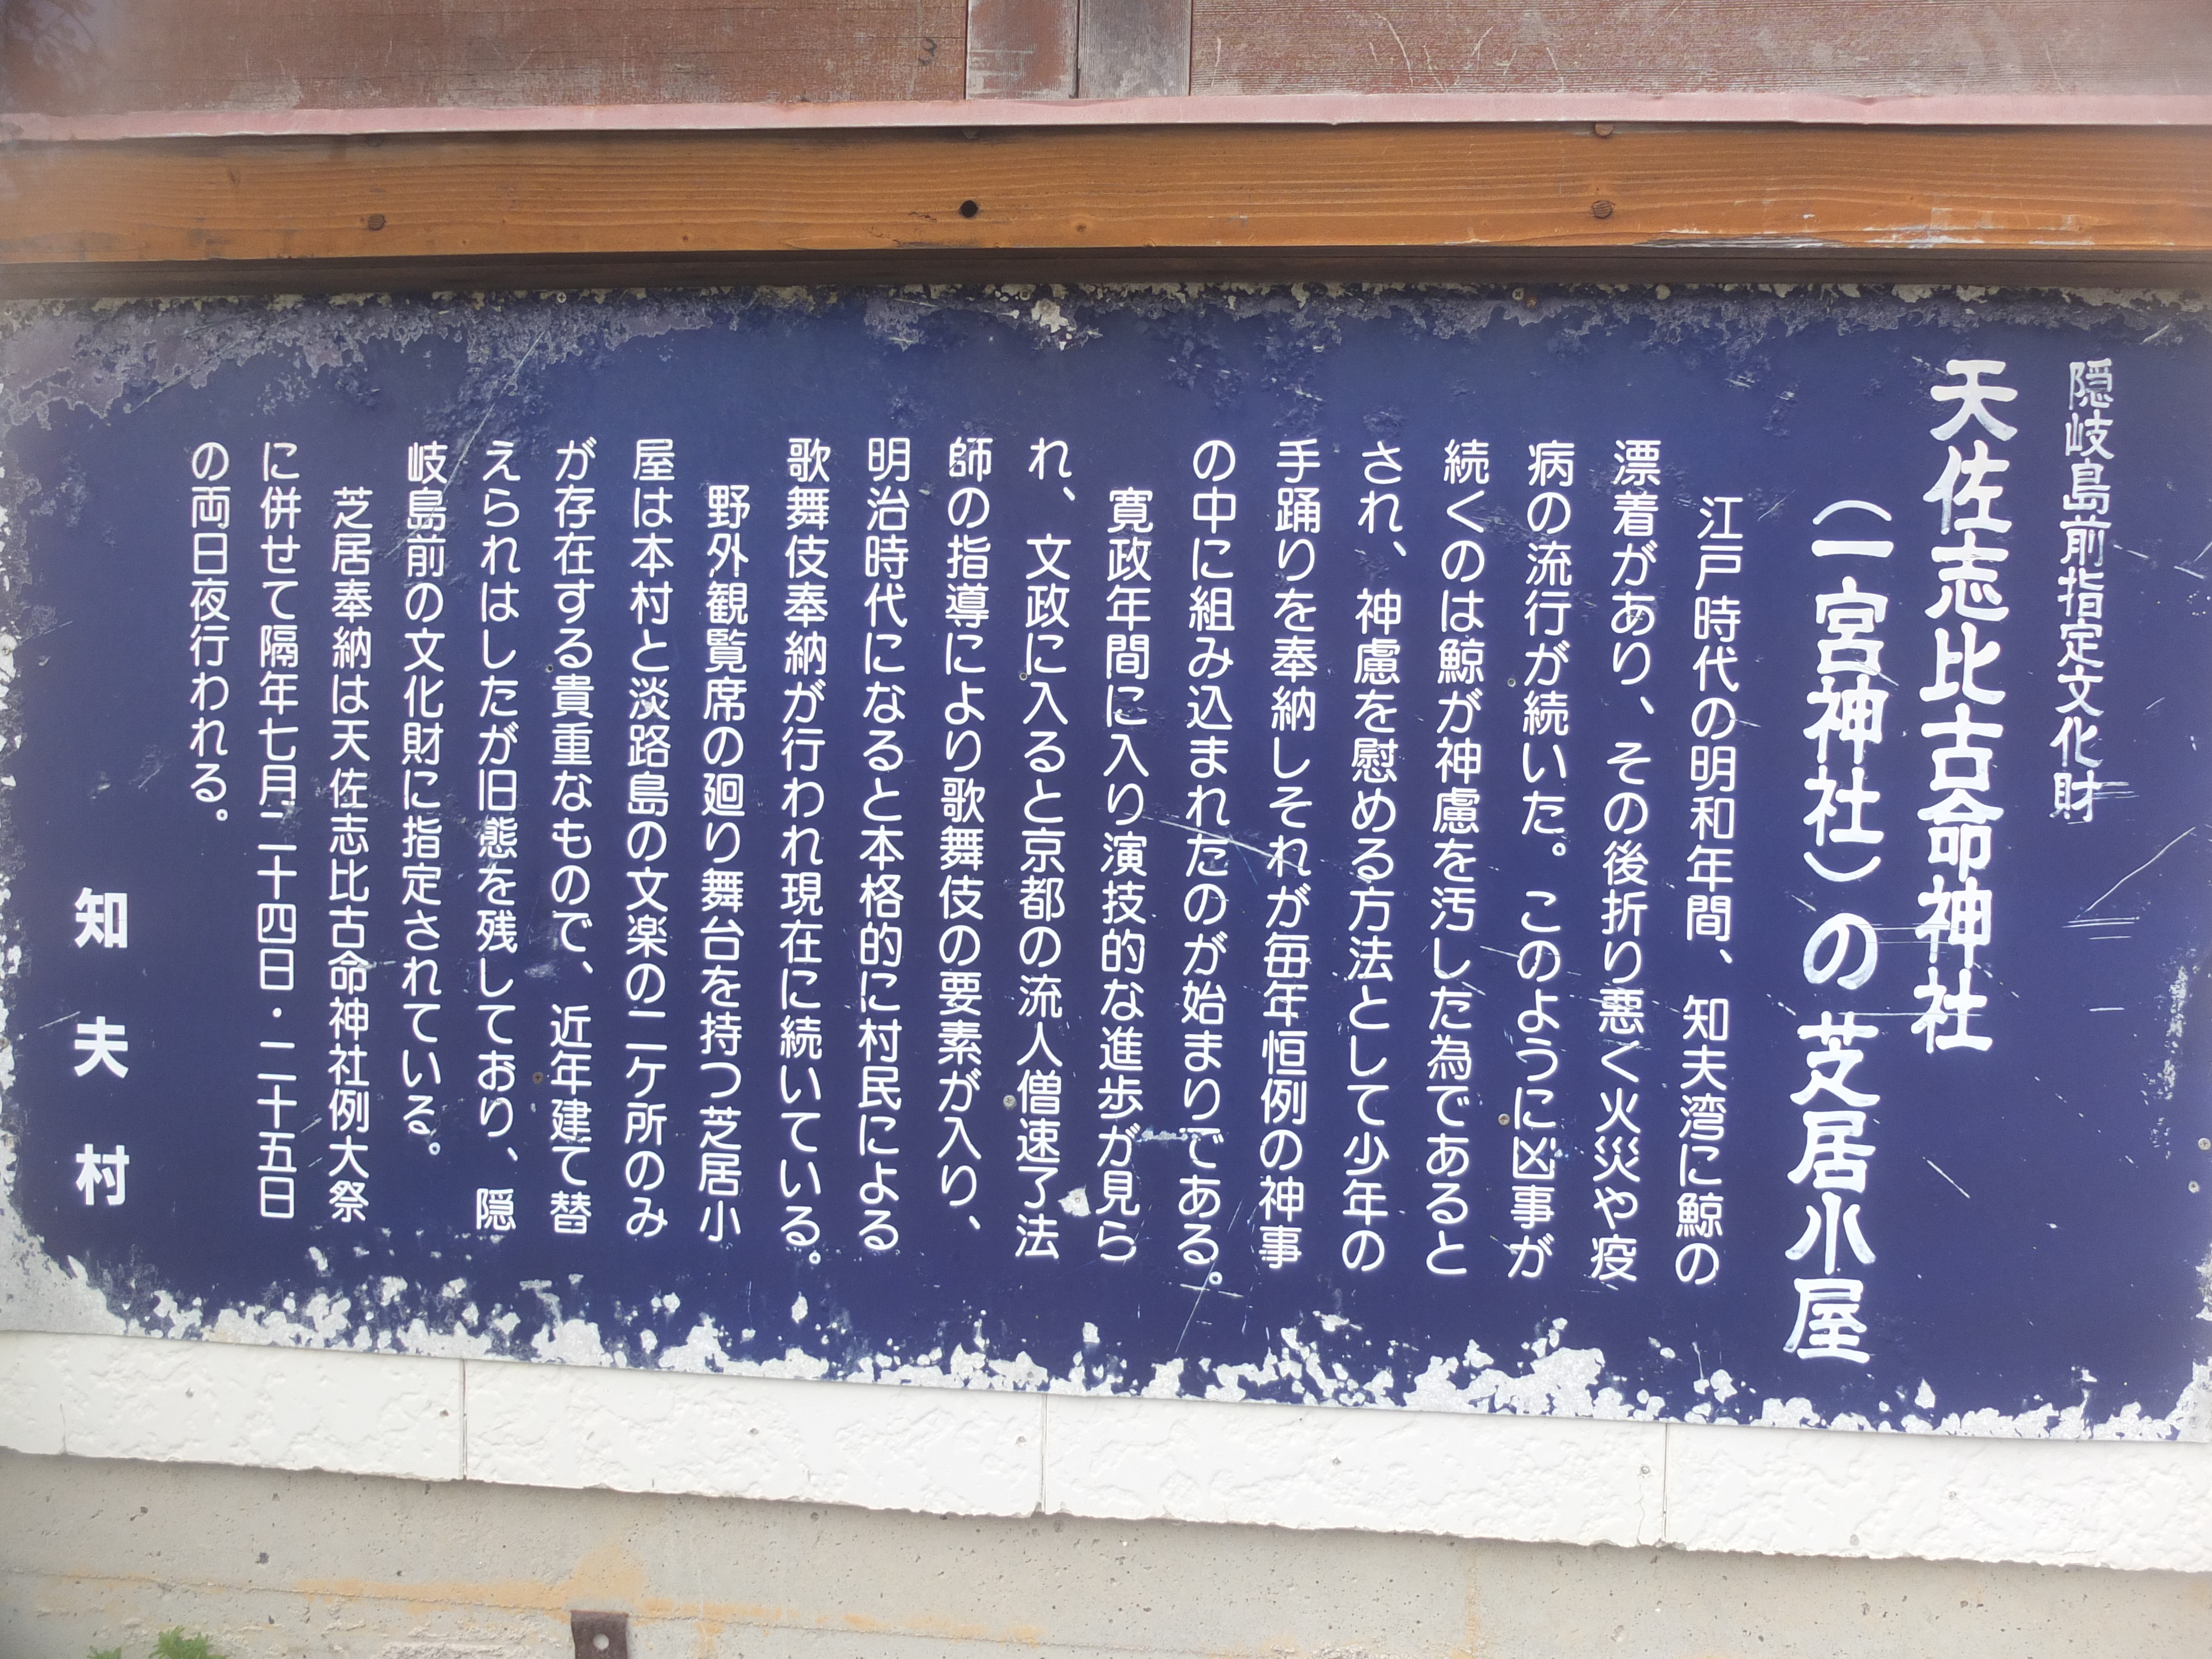 隠岐島前指定文化財
天佐志比古命神社
（一宮神社）の芝居小屋
江戸時代の明和年間、知夫湾に鯨の
漂着があり、その後折り悪く火災や疫
病の流行が続いた。このように凶事が
続くのは鯨が神慮を汚した為であると
され、神慮を慰める方法として少年の
手踊りを奉納しそれが毎年恒例の神事
の中に組み込まれたのが始まりである。
寛政年間に入り演技的な進歩が見ら
れ、文政に入ると京都の流人僧速了法
師の指導により歌舞伎の要素が入り、
明治時代になると本格的に村民による
歌舞伎奉納が行われ現在に続いている。
野外観覧席の廻り舞台を持つ芝居小
屋は本村と淡路島の文楽の二ケ所のみ
が存在する貴重なもので、近年建て替
えられはしたが旧態を残しており、隠
岐島前の文化財に指定されている。
芝居奉納は天佐志比古命神社例大祭
に併せて隔年七月二十四日・二十五日
の両日夜行われる。
知夫村